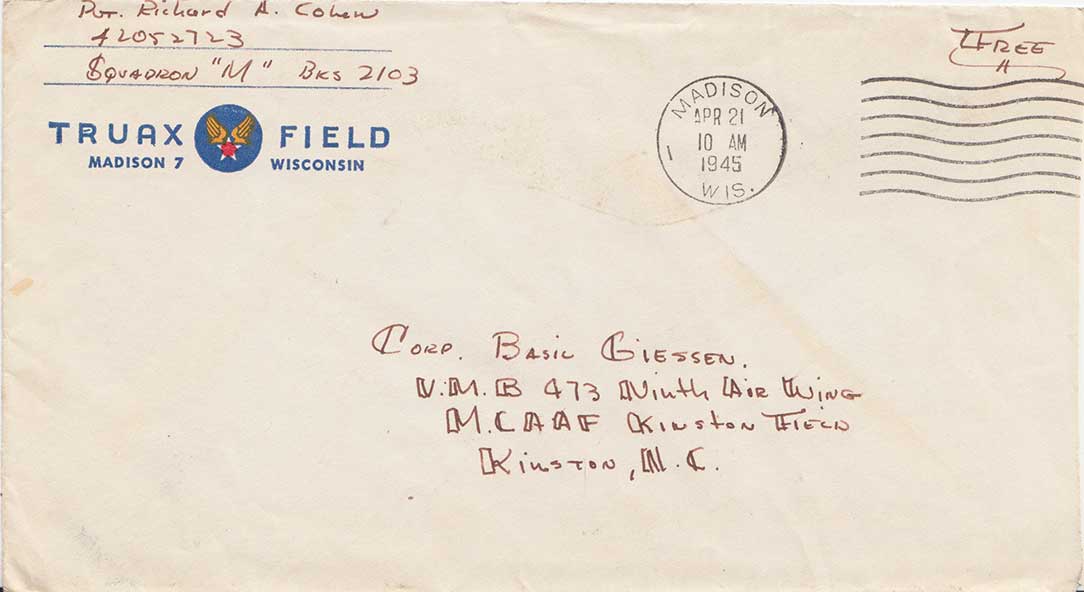 Pvt. Richard A. Cohen
42052723
Squadron "M" Bks 2103
TRUAX FIELD
MADISON 7 WISCONSIN
MADISON
APR 21
10 AM
1945
1
WIS.
FREE
Corp. Basil Giessen.
V.M.B 473 Ninth Air Wing
M.C.A.A.F Kinston Field
Kinston, N.C.